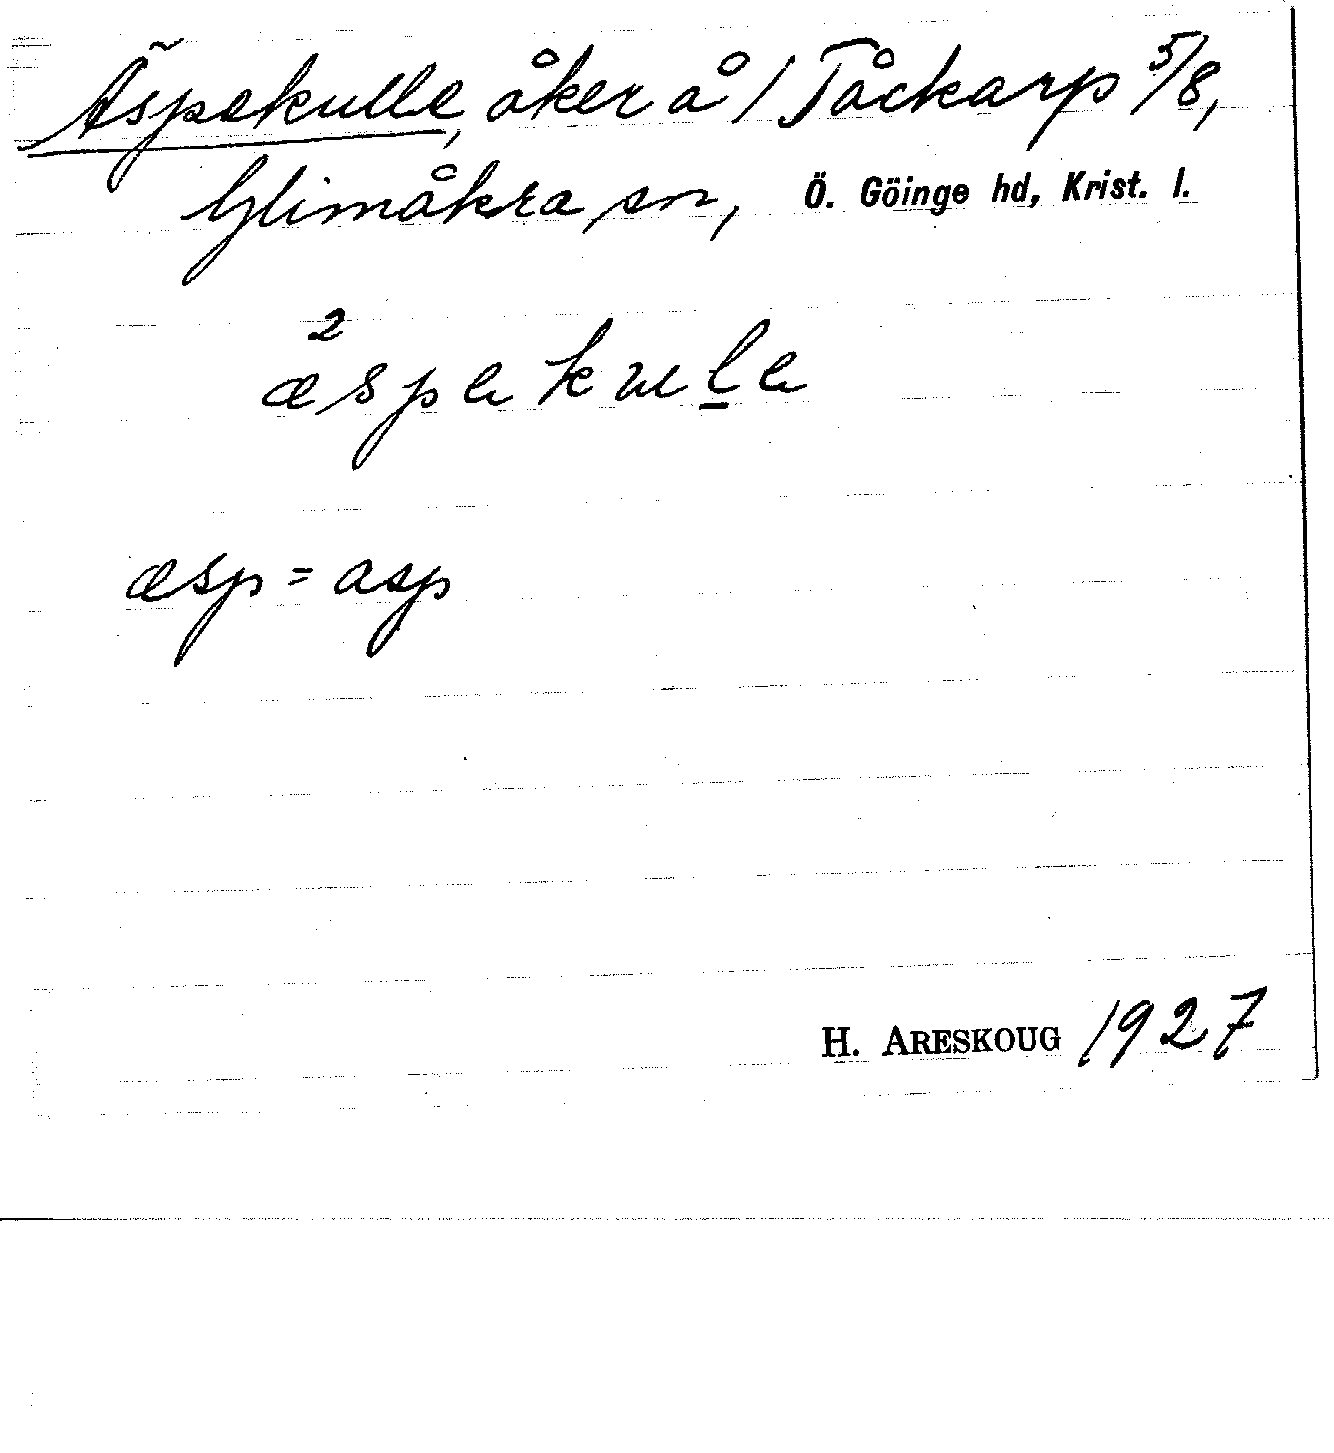 Äspekulle, åker å 1 Tåckarp 5/8,
Glimåkra sn, Ö. Göinge hd, Krist. l.
2
æspekul̲e
æsp = asp
H. ARESKOUG 1927